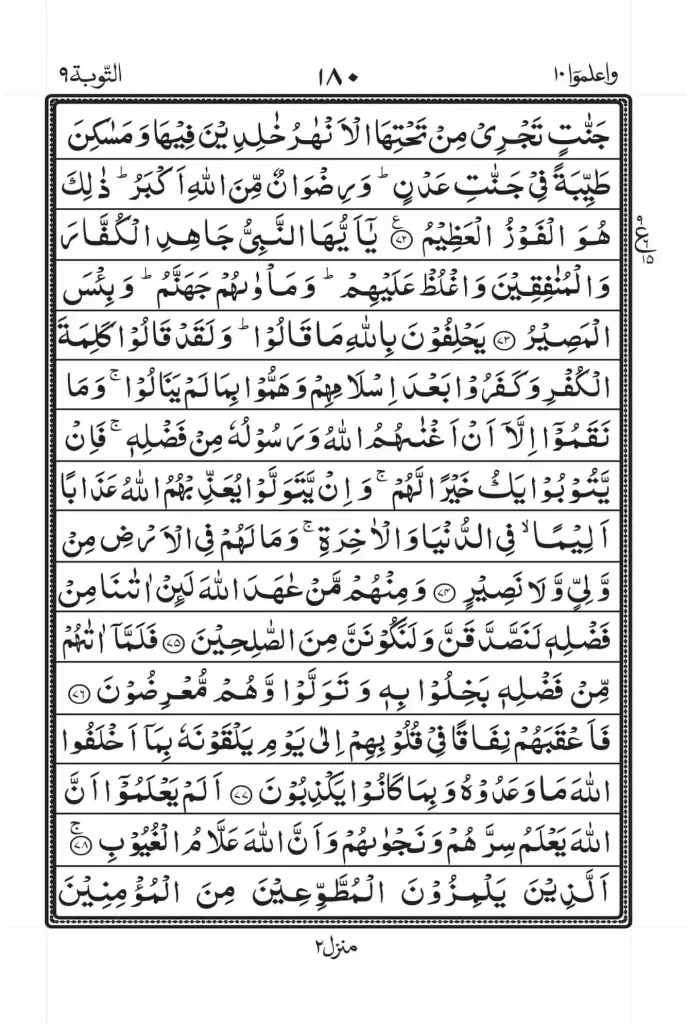 واعلموٓا ١٠ ١٨٠ التّوبة ٩
جَنّٰتٍ تَجۡرِىۡ مِنۡ تَحۡتِهَا الۡاَنۡهٰرُ خٰلِدِيۡنَ فِيۡهَا وَمَسٰكِنَ
طَيِّبَةً فِىۡ جَنّٰتِ عَدۡنٍ‌ ؕ وَرِضۡوَانٌ مِّنَ اللّٰهِ اَكۡبَرُ‌ ؕ ذٰلِكَ
هُوَ الۡفَوۡزُ الۡعَظِيۡمُ ﴿۷۲﴾ۧ يٰۤاَيُّهَا النَّبِىُّ جَاهِدِ الۡكُفَّارَ
وَالۡمُنٰفِقِيۡنَ وَاغۡلُظۡ عَلَيۡهِمۡ‌ ؕ وَمَاۡوٰٮهُمۡ جَهَـنَّمُ‌ ؕ وَبِئۡسَ
الۡمَصِيۡرُ ﴿۷۳﴾ يَحۡلِفُوۡنَ بِاللّٰهِ مَا قَالُوۡا ؕ وَلَقَدۡ قَالُوۡا كَلِمَةَ
الۡـكُفۡرِ وَكَفَرُوۡا بَعۡدَ اِسۡلَامِهِمۡ وَهَمُّوۡا بِمَا لَمۡ يَنَالُوۡا‌ ۚ وَمَا
نَقَمُوۡۤا اِلَّاۤ اَنۡ اَغۡنٰٮهُمُ اللّٰهُ وَرَسُوۡلُهٗ مِنۡ فَضۡلِهٖ‌ ۚ فَاِنۡ
يَّتُوۡبُوۡا يَكُ خَيۡرًا لَّهُمۡ‌ ۚ وَاِنۡ يَّتَوَلَّوۡا يُعَذِّبۡهُمُ اللّٰهُ عَذَابًا
اَلِيۡمًا ۙ فِى الدُّنۡيَا وَالۡاٰخِرَةِ‌ ۚ وَمَا لَهُمۡ فِى الۡاَرۡضِ مِنۡ
وَّلِىٍّ وَّلَا نَصِيۡرٍ ﴿۷۴﴾ وَمِنۡهُمۡ مَّنۡ عٰهَدَ اللّٰهَ لَٮِٕنۡ اٰتٰٮنَا مِنۡ
فَضۡلِهٖ لَـنَصَّدَّقَنَّ وَلَنَكُوۡنَنَّ مِنَ الصّٰلِحِيۡنَ ﴿۷۵﴾ فَلَمَّاۤ اٰتٰٮهُمۡ
مِّنۡ فَضۡلِهٖ بَخِلُوۡا بِهٖ وَتَوَلَّوۡا وَّهُمۡ مُّعۡرِضُوۡنَ ﴿۷۶﴾
فَاَعۡقَبَهُمۡ نِفَاقًا فِىۡ قُلُوۡبِهِمۡ اِلٰى يَوۡمِ يَلۡقَوۡنَهٗ بِمَاۤ اَخۡلَفُوا
اللّٰهَ مَا وَعَدُوۡهُ وَبِمَا كَانُوۡا يَكۡذِبُوۡنَ ﴿۷۷﴾ اَلَمۡ يَعۡلَمُوۡۤا اَنَّ
اللّٰهَ يَعۡلَمُ سِرَّهُمۡ وَنَجۡوٰٮهُمۡ وَاَنَّ اللّٰهَ عَلَّامُ الۡغُيُوۡبِ‌ ﴿۷۸﴾ۚ
اَلَّذِيۡنَ يَلۡمِزُوۡنَ الۡمُطَّوِّعِيۡنَ مِنَ الۡمُؤۡمِنِيۡنَ
٩ ع ٦ ١٥
منزل ٢